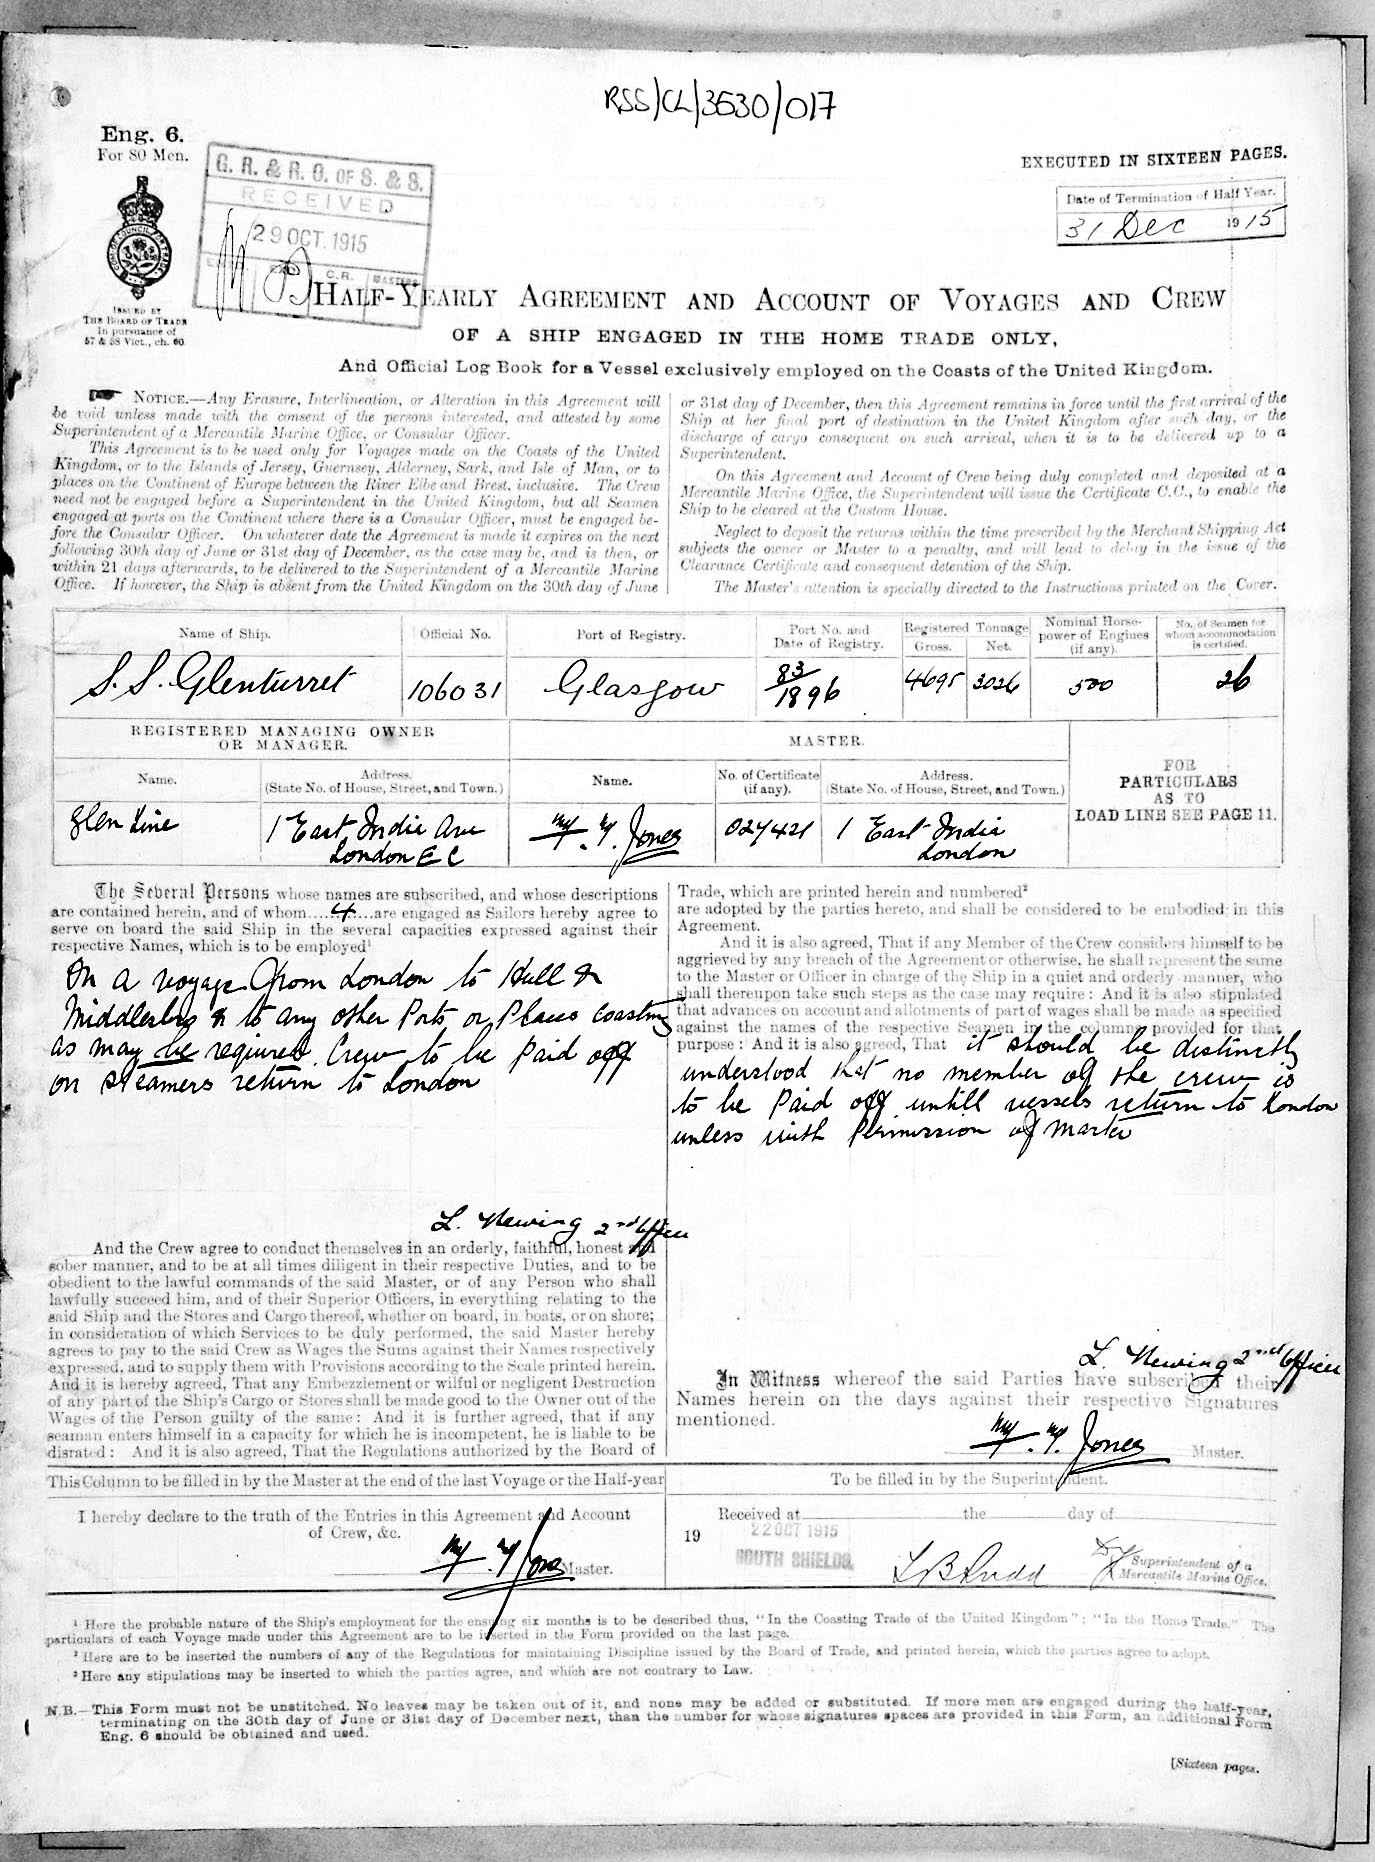 RSS/CL/3530/017
Eng. 6.
For 80 Men.
G. R. & R. O. OF S. & S.
RECEIVED
29 OCT. 1915
C.R.
MASTERS
EXECUTED IN SIXTEEN PAGES.
Date of Termination of Half Year.
31 Dec 1915
ISSUED BY
THE BOARD OF TRADE
In pursuance of
57 & 58 Vict., ch. 60
HALF-YEARLY AGREEMENT AND ACCOUNT OF VOYAGES AND CREW
OF A SHIP ENGAGED IN THE HOME TRADE ONLY,
And Official Log Book for a Vessel exclusively employed on the Coasts of the United Kingdom.
NOTICE.—Any Erasure, Interlineation, or Alteration in this Agreement will
be void unless made with the consent of the persons interested, and attested by some
Superintendent of a Mercantile Marine Office, or Consular Officer.
This Agreement is to be used only for Voyages made on the Coasts of the United
Kingdom, or to the Islands of Jersey, Guernsey, Alderney, Sark, and Isle of Man, or to
places on the Continent of Europe between the River Elbe and Brest, inclusive. The Crew
need not be engaged before a Superintendent in the United Kingdom, but all Seamen
engaged at ports on the Continent where there is a Consular Officer, must be engaged be-
fore the Consular Officer. On whatever date the Agreement is made it expires on the next
following 30th day of June or 31st day of December, as the case may be, and is then, or
within 21 days afterwards, to be delivered to the Superintendent of a Mercantile Marine
Office. If however, the Ship is absent from the United Kingdom on the 30th day of June
or 31st day of December, then this Agreement remains in force until the first arrival of the
Ship at her final port of destination in the United Kingdom after such day, or the
discharge of cargo consequent on such arrival, when it is to be delivered up to a
Superintendent.
On this Agreement and Account of Crew being duly completed and deposited at a
Mercantile Marine Office, the Superintendent will issue the Certificate C.C., to enable the
Ship to be cleared at the Custom House.
Neglect to deposit the returns within the time prescribed by the Merchant Shipping Act
subjects the owner or Master to a penalty, and will lead to delay in the issue of the
Clearance Certificate and consequent detention of the Ship.
The Master's attention is specially directed to the Instructions printed on the Cover.
Name of Ship. Official No. Port of Registry. Port No. and Date of Registry. Registered Tonnage Gross. Net. Nominal Horse-power of Engines (if any). No. of Seamen for whom accommodation is certified.
S.S. Glenturret 106031 Glasgow 83/1896 4695 3026 500 26
REGISTERED MANAGING OWNER OR MANAGER. MASTER. FOR PARTICULARS AS TO LOAD LINE SEE PAGE 11.
Name. Address. (State No. of House, Street, and Town.) Name. No. of Certificate (if any). Address. (State No. of House, Street, and Town.)
Glen Line 1 East India Ave Jones 027421 1 East India
London E C London
The Several Persons whose names are subscribed, and whose descriptions
are contained herein, and of whom....4....are engaged as Sailors hereby agree to
serve on board the said Ship in the several capacities expressed against their
respective Names, which is to be employed¹
On a voyage from London to Hull &
Middlesbro & to any other Ports or Places coasting
as may be required. Crew to be paid off
on steamers return to London
L. Newing 2nd Officer
And the Crew agree to conduct themselves in an orderly, faithful, honest and
sober manner, and to be at all times diligent in their respective Duties, and to be
obedient to the lawful commands of the said Master, or of any Person who shall
lawfully succeed him, and of their Superior Officers, in everything relating to the
said Ship and the Stores and Cargo thereof, whether on board, in boats, or on shore;
in consideration of which Services to be duly performed, the said Master hereby
agrees to pay to the said Crew as Wages the Sums against their Names respectively
expressed, and to supply them with Provisions according to the Scale printed herein.
And it is hereby agreed, That any Embezzlement or wilful or negligent Destruction
of any part of the Ship's Cargo or Stores shall be made good to the Owner out of the
Wages of the Person guilty of the same: And it is further agreed, that if any
seaman enters himself in a capacity for which he is incompetent, he is liable to be
disrated: And it is also agreed, That the Regulations authorized by the Board of
Trade, which are printed herein and numbered²
are adopted by the parties hereto, and shall be considered to be embodied in this
Agreement.
And it is also agreed, That if any Member of the Crew considers himself to be
aggrieved by any breach of the Agreement or otherwise, he shall represent the same
to the Master or Officer in charge of the Ship in a quiet and orderly manner, who
shall thereupon take such steps as the case may require: And it is also stipulated
that advances on account and allotments of part of wages shall be made as specified
against the names of the respective Seamen in the columns provided for that
purpose: And it is also agreed, That it should be distinctly
understood that no member of the crew is
to be Paid off untill vessels return to London
unless with Permission of Master
L. Newing 2nd Officer
In Witness whereof the said Parties have subscribed their
Names herein on the days against their respective Signatures
mentioned.
Jones Master.
This Column to be filled in by the Master at the end of the last Voyage or the Half-year
I hereby declare to the truth of the Entries in this Agreement and Account
of Crew, &c.
Jones Master.
To be filled in by the Superintendent.
Received at the day of
19 22 OCT 1915
SOUTH SHIELDS.
Superintendent of a
Mercantile Marine Office.
¹ Here the probable nature of the Ship's employment for the ensuing six months is to be described thus, "In the Coasting Trade of the United Kingdom"; "In the Home Trade." The
particulars of each Voyage made under this Agreement are to be inserted in the Form provided on the last page.
² Here are to be inserted the numbers of any of the Regulations for maintaining Discipline issued by the Board of Trade, and printed herein, which the parties agree to adopt.
³ Here any stipulations may be inserted to which the parties agree, and which are not contrary to Law.
N.B.—This Form must not be unstitched. No leaves may be taken out of it, and none may be added or substituted. If more men are engaged during the half-year,
terminating on the 30th day of June or 31st day of December next, than the number for whose signatures spaces are provided in this Form, an additional Form
Eng. 6 should be obtained and used.
[Sixteen pages.